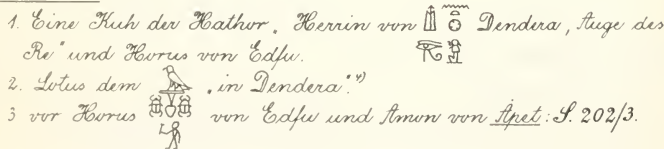 1. Eine Kuh der Hathor „Herrin von Dendera, Auge des
Re" und Horus von Edfu.
2. Lotus dem „in Dendera".4)
3 vor Horus von Edfu und Amon von Apet: S. 202/3.